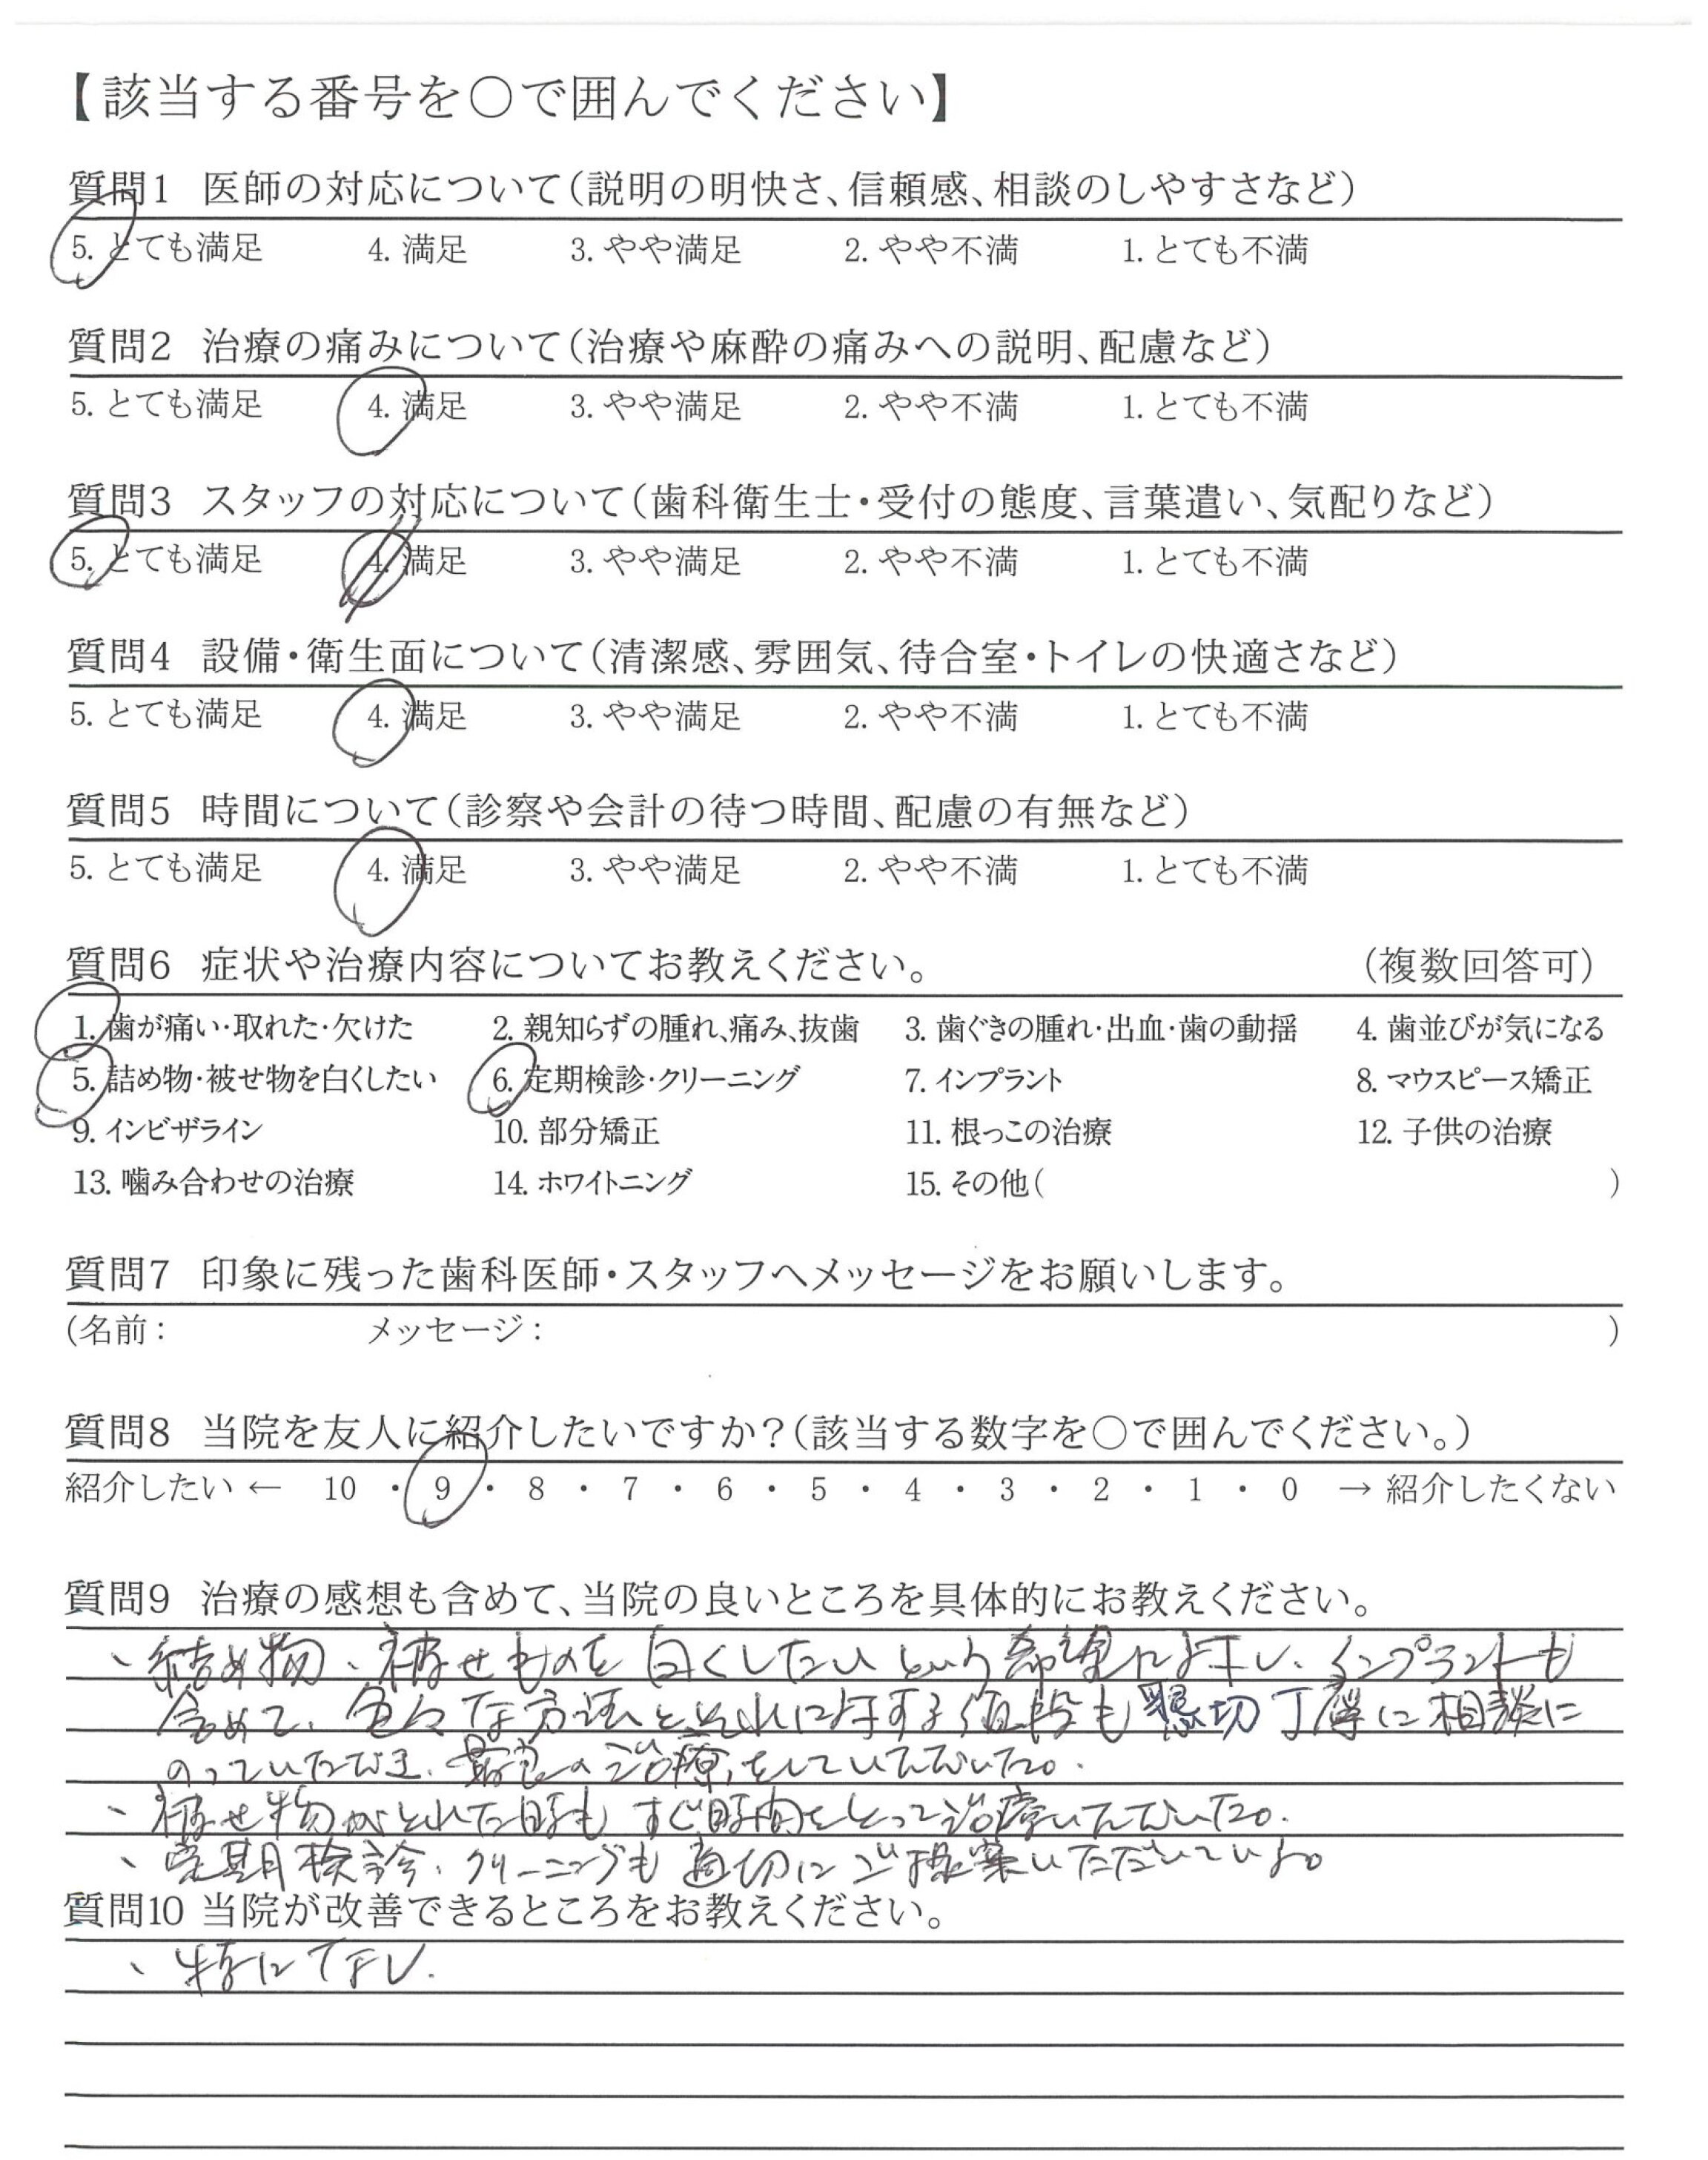 【該当する番号を〇で囲んでください】
質問1 医師の対応について(説明の明快さ、信頼感、相談のしやすさなど)
5. とても満足 4. 満足 3. やや満足 2. やや不満 1. とても不満
質問2 治療の痛みについて(治療や麻酔の痛みへの説明、配慮など)
5. とても満足 4. 満足 3. やや満足 2. やや不満 1. とても不満
質問3 スタッフの対応について(歯科衛生士・受付の態度、言葉遣い、気配りなど)
5. とても満足 4. 満足 3. やや満足 2. やや不満 1. とても不満
質問4 設備・衛生面について(清潔感、雰囲気、待合室・トイレの快適さなど)
5. とても満足 4. 満足 3. やや満足 2. やや不満 1. とても不満
質問5 時間について(診察や会計の待つ時間、配慮の有無など)
5. とても満足 4. 満足 3. やや満足 2. やや不満 1. とても不満
質問6 症状や治療内容についてお教えください。 (複数回答可)
1. 歯が痛い・取れた・欠けた 2. 親知らずの腫れ、痛み、抜歯 3. 歯ぐきの腫れ・出血・歯の動揺 4. 歯並びが気になる
5. 詰め物・被せ物を白くしたい 6. 定期検診・クリーニング 7. インプラント 8. マウスピース矯正
9. インビザライン 10. 部分矯正 11. 根っこの治療 12. 子供の治療
13. 噛み合わせの治療 14. ホワイトニング 15. その他( )
質問7 印象に残った歯科医師・スタッフへメッセージをお願いします。
(名前: メッセージ: )
質問8 当院を友人に紹介したいですか?(該当する数字を〇で囲んでください。)
紹介したい ← 10 ・ 9 ・ 8 ・ 7 ・ 6 ・ 5 ・ 4 ・ 3 ・ 2 ・ 1 ・ 0 → 紹介したくない
質問9 治療の感想も含めて、当院の良いところを具体的にお教えください。
、詰め物、被せものを白くしたいという希望に対し、インプラントも
含めて、色々な方法とそれに対する値段も懇切丁寧に相談に
のっていただき、最良の治療をしていただいた。
、被せ物がとれた時もすぐ時間をとって治療いただいた。
、定期検診、クリーニングも適切にご提案いただいている。
質問10 当院が改善できるところをお教えください。
、特になし.